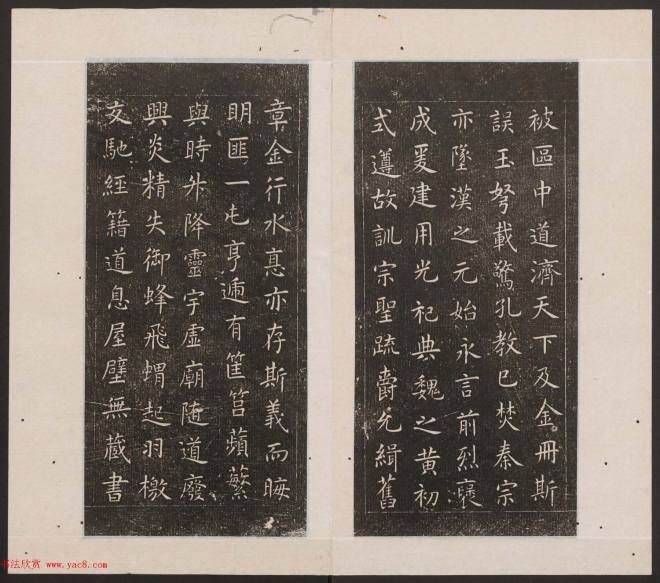 被區中道濟天下及金冊斯
誤玉弩載驚孔教已焚秦宗
亦墜漢之元始永言前烈褒
成爰建用光祀典魏之黄初
式遵故訓宗聖疏爵允緝舊
章金行水悳亦存斯義而晦
明匪一屯亨遞有筐筥蘋蘩
與時升降靈宇虛廟隨道廢
興炎精失御蜂飛蝟起羽檄
交馳經籍道息屋壁無藏書
书法欣赏 www.yac8.com